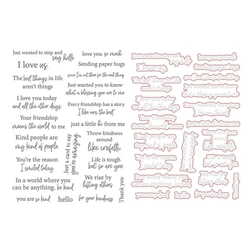 Just wanted to stop and
say hello
I love us
The best things in life
aren't things
I love you today
and all the other days
Your friendship
means the world to me
Kind people are
my kind of people
You're the reason
I smiled today
In a world where you
can be anything, be kind
you are so kind
hello
love you so much
Sending paper hugs
Just wanted you to know
what a blessing you are to me
Every friendship has a story.
I like ours the best
just a little from me
Throw kindness
like confetti
you're amazing
just a card to say
Life is tough
but so are you
We rise by
lifting others
for your kindness
Thank you